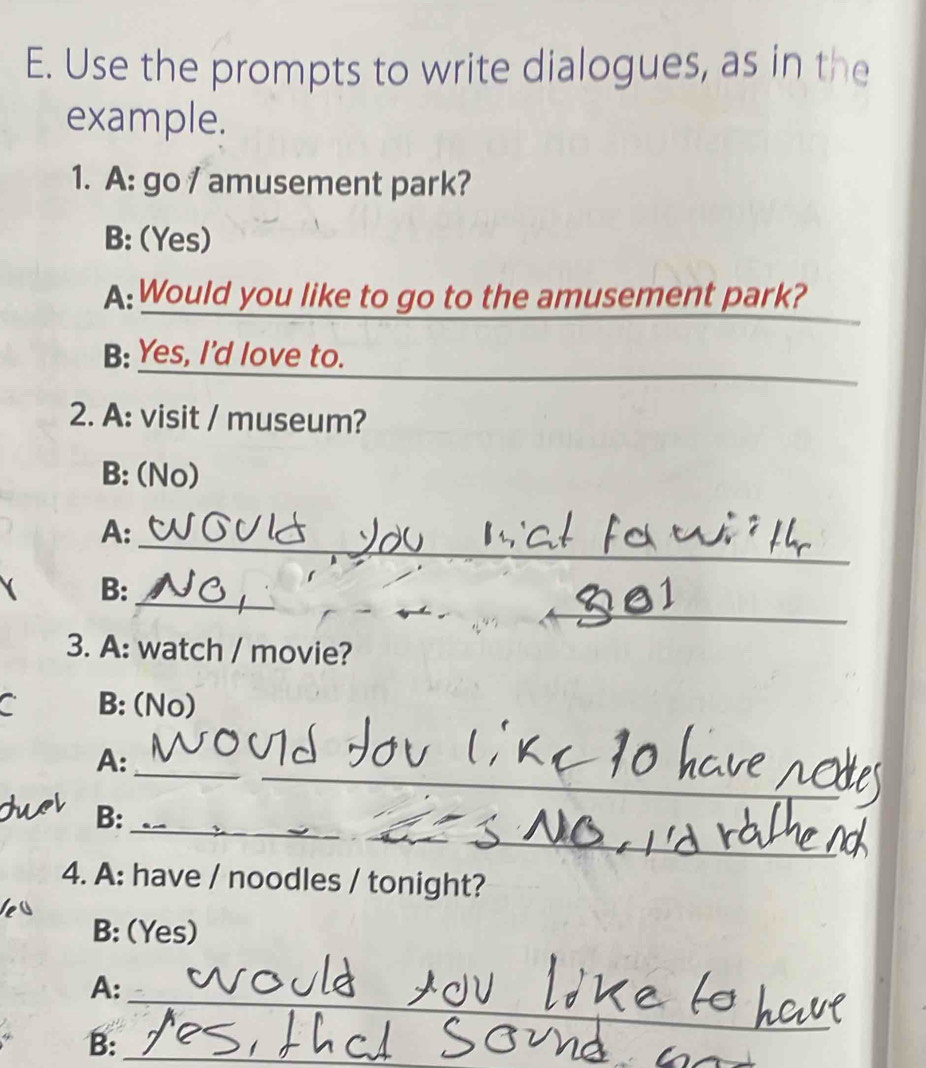 E. Use the prompts to write dialogues, as in the
example.
1. A: go / amusement park?
B: (Yes)
A: Would you like to go to the amusement park?
B: Yes, I'd love to.
2. A: visit / museum?
B: (No)
A: would you
B: No,
3. A: watch / movie?
B: (No)
A: Would you like to have
B: No, I'd
4. A: have / noodles / tonight?
B: (Yes)
A: would you like to have
B: Yes, that Sound